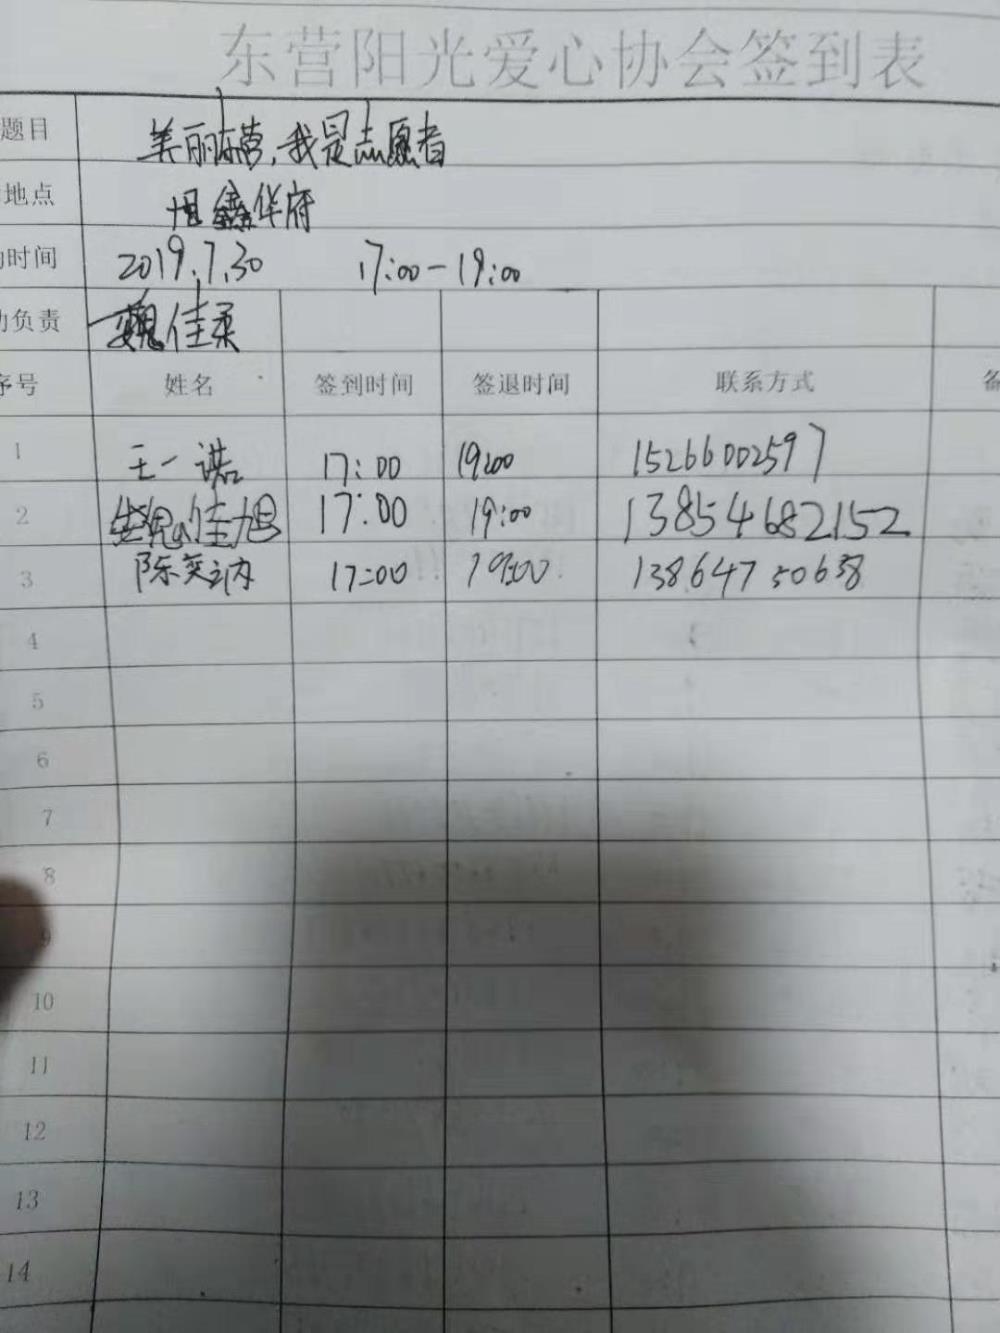 东营阳光爱心协会签到表
题目 美丽东营,我是志愿者
地点 恒鑫华府
时间 2019.7.30 17:00-19:00
负责 魏佳柔
序号 姓名 签到时间 签退时间 联系方式 备
1 王一诺 17:00 19:00 15266002597
2 魏佳旭 17:00 19:00 13854682152
3 陈奕 17:00 19:00 13864750638
4
5
6
7
8
9
10
11
12
13
14